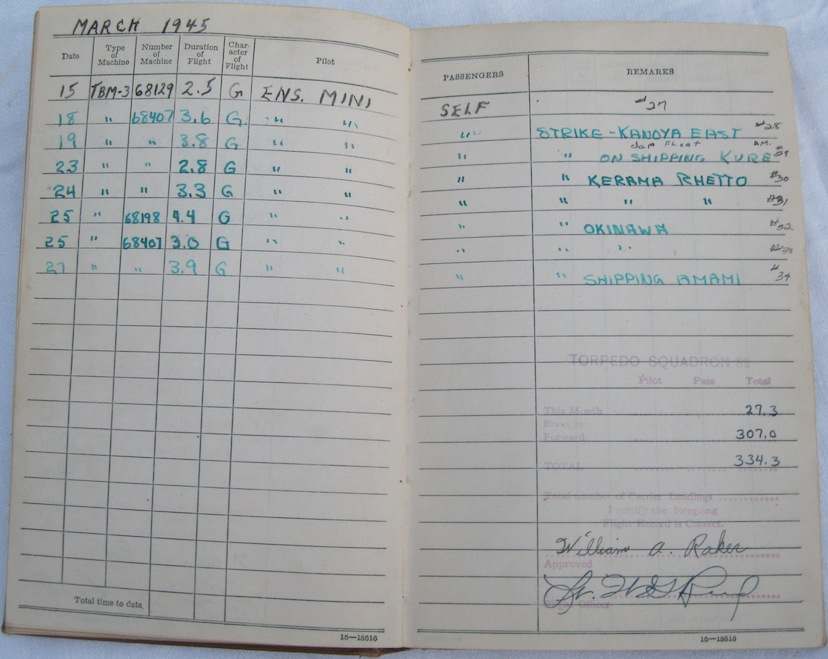 MARCH 1945
Date Type of Machine Number of Machine Duration of Flight Character of Flight Pilot PASSENGERS REMARKS
15 TBM-3 68129 2.5 G ENS. MINI SELF #27
18 " 68407 3.6 G. " " " STRIKE - KANOYA EAST #28
19 " " 3.8 G " " " " ON SHIPPING KURE Jap Fleet A.M. #29
23 " " 2.8 G " " " " KERAMA RHETTO #30
24 " " 3.3 G " " " " " " #31
25 " 68198 4.4 G " " " " OKINAWA #32
25 " 68407 3.0 G " " " " "
27 " " 3.9 G " " " " SHIPPING AMAMI #34
TORPEDO SQUADRON
Pilot Pass Total
This Month 27.3
Forward 307.0
TOTAL 334.3
Total number of Carrier Landings
I certify the foregoing
Flight Record is Correct.
William A. Raker
Approved
Officer
Total time to date,
16—18616 16—18616